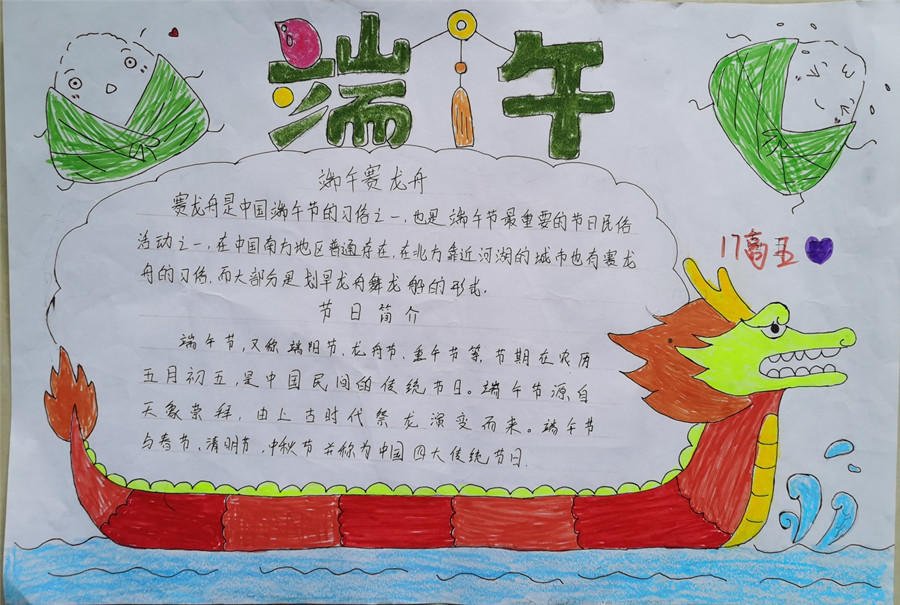 端午
端午赛龙舟
赛龙舟是中国端午节的习俗之一，也是端午节最重要的节日民俗
活动之一，在中国南方地区普通存在，在北方靠近河湖的城市也有赛龙
舟的习俗，而大部分是划旱龙舟舞龙船的形式．
17高五
节日简介
端午节，又称端阳节、龙舟节、重午节等，节期在农历
五月初五，是中国民间的传统节日。端午节源自
天象崇拜，由上古时代祭龙演变而来。端午节
与春节、清明节、中秋节并称为中国四大传统节日．